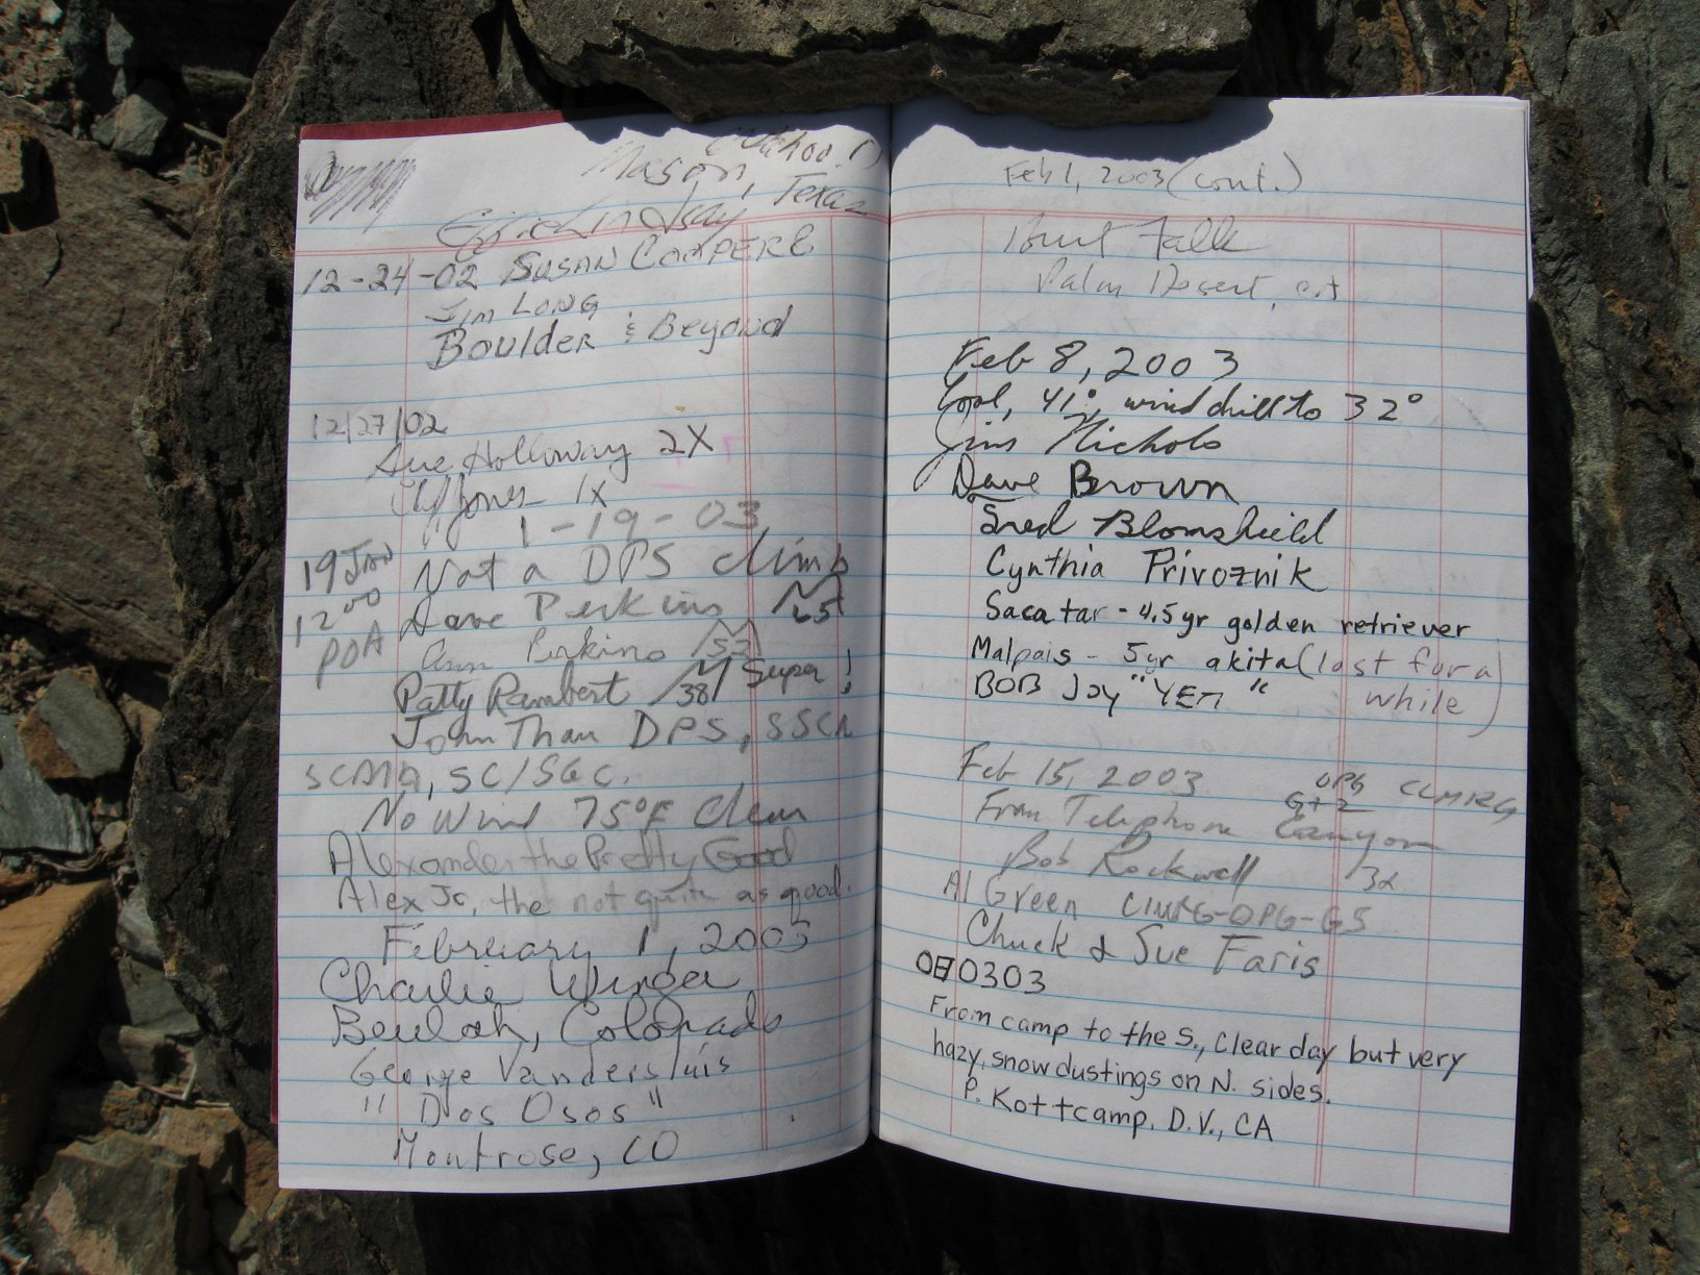 (Wahoo!)
Mason, Texas
Eric Lindsay
12-24-02 SUSAN COMPERE
Jim LONG
BOULDER & Beyond
12/27/02
Sue Holloway 2X
Jones 1X
1-19-03
19 JAN Not a DPS climb
12 00 Dave Perkins 65
PDA Ann Perkins 53
Patty Rambert 38 Super!
John Than DPS, SSCh
SCMA, SC/SGC.
No Wind 75°F Clear
Alexander the Pretty Good
Alex Jr, the not quite as good.
February 1, 2003
Charlie Winger
Beulah, Colorado
George Vandersluis
"Dos Osos"
Montrose, CO
Feb 1, 2003 (cont.)
Burt Falk
Palm Desert, CA
Feb 8, 2003
Cool, 41°, wind chill to 32°
Jim Nichols
Dave Brown
Blomshield
Cynthia Privoznik
Sacatar - 4.5yr golden retriever
Malpais - 5yr akita (lost for a while)
BOB Joy "YETI"
Feb 15, 2003 OPG CLMRG
From Telephone Canyon
Bob Rockwell 3x
Al Green CLMRG-OPG-GS
Chuck & Sue Faris
0303
From camp to the S., Clear day but very
hazy, snow dustings on N. sides.
P. Kottcamp, D.V., CA